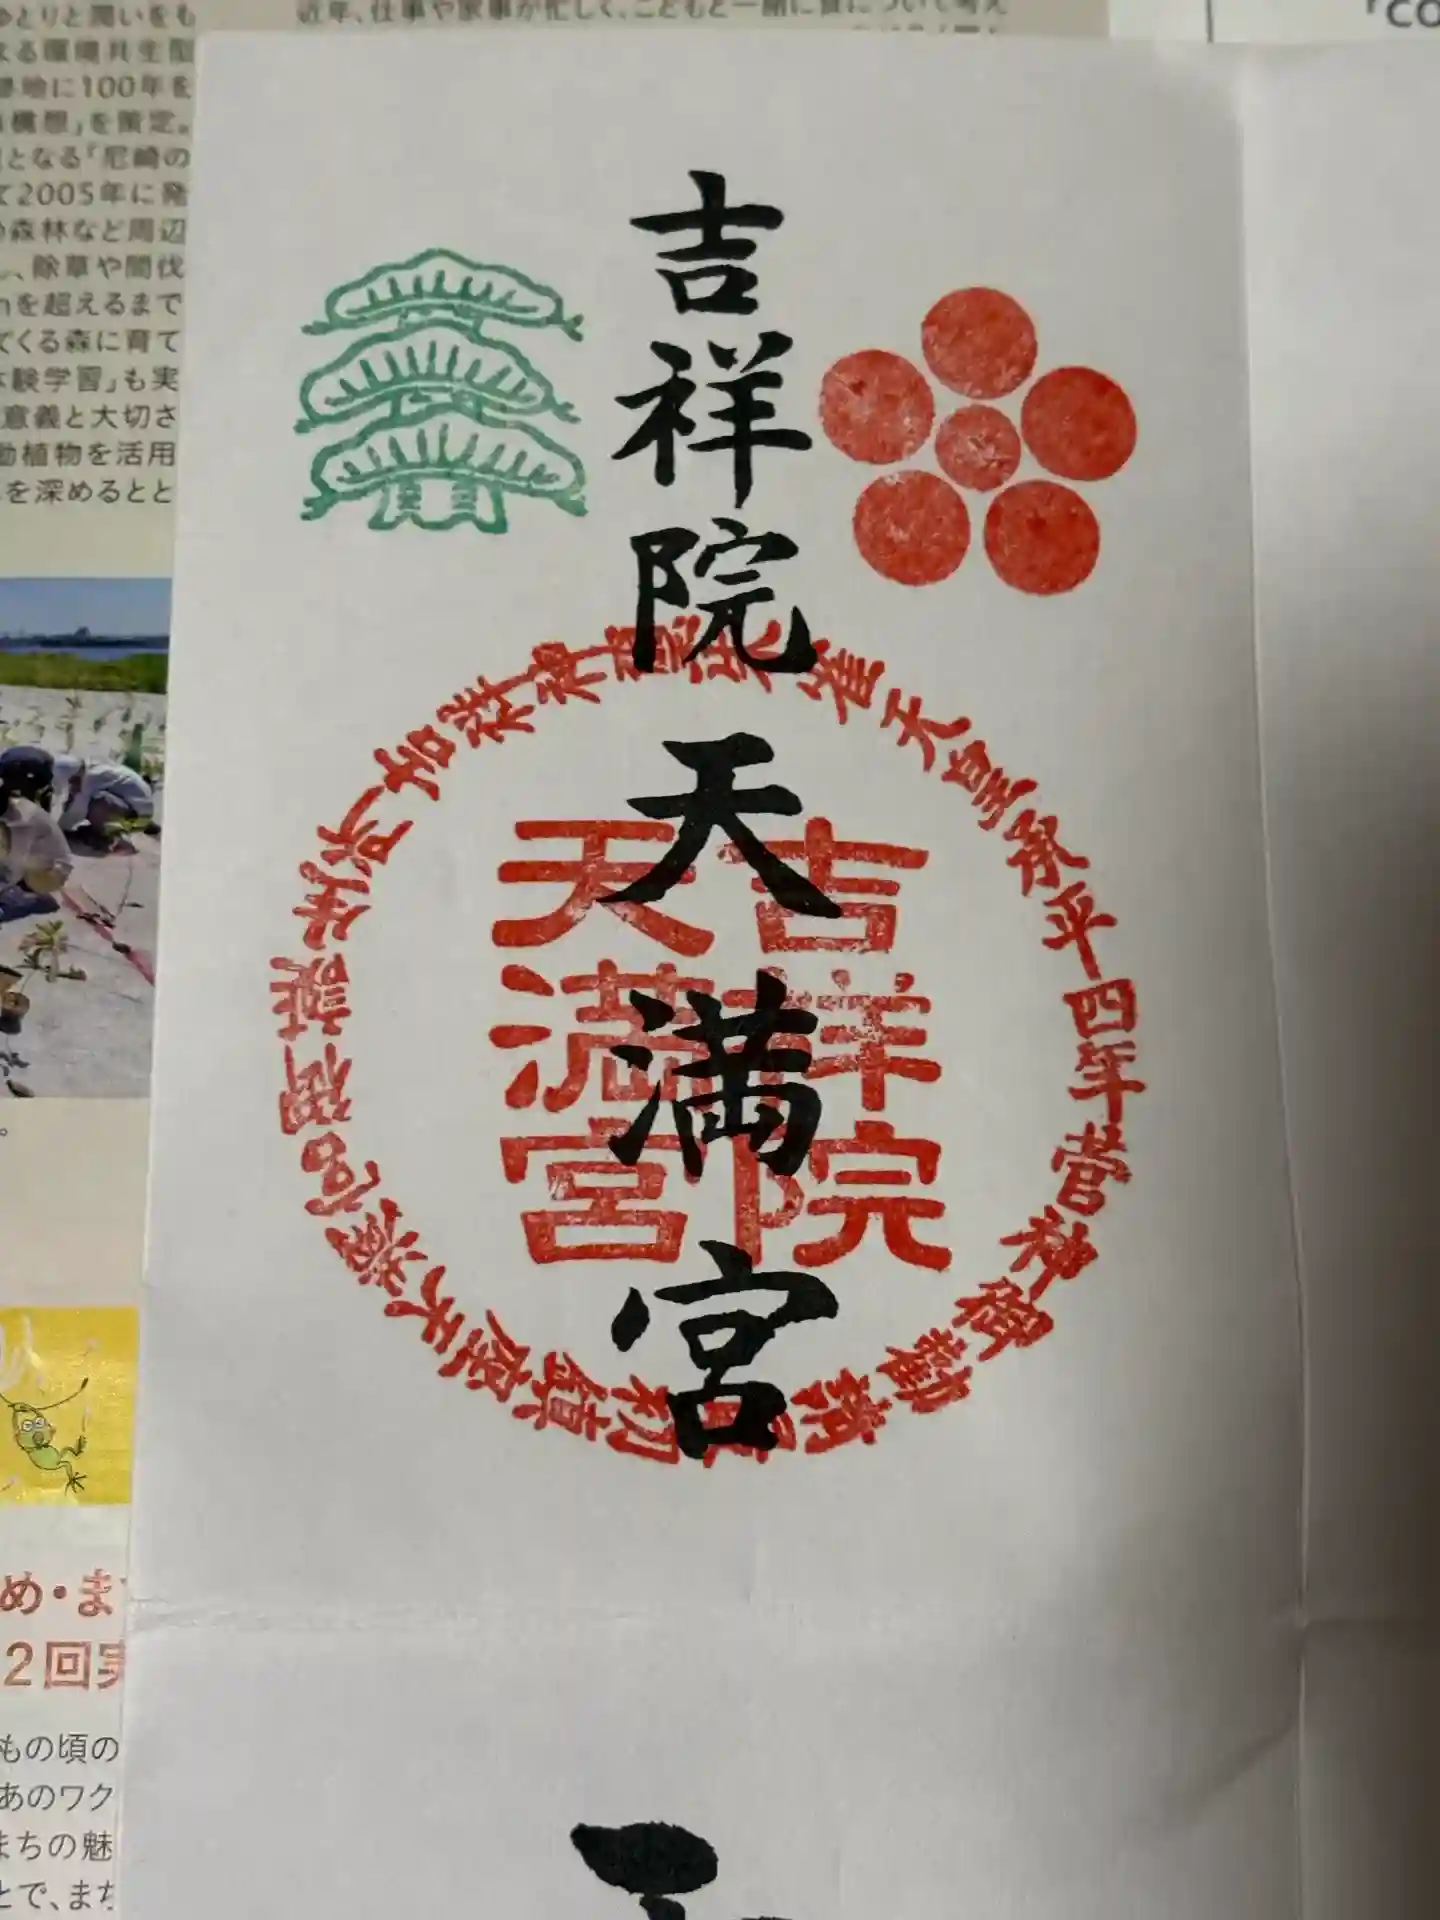 吉祥院天満宮
吉祥院
天満宮
朱雀天皇承平四年菅神御勧請最初鎮座天満宮
ゆとりと潤いをも
よる環境共生型
地に100年を
構想」を策定。
となる「尼崎の
て2005年に発
森林など周辺
、除草や間伐
を超えるまで
てくる森に育て
体験学習」も実
意義と大切さ
動植物を活用
を深めるとと
近年、仕事や家事が忙しく、こどもと一緒に食について考え
め・ま
2回実
もの頃の
あのワク
まちの魅
とで、まち